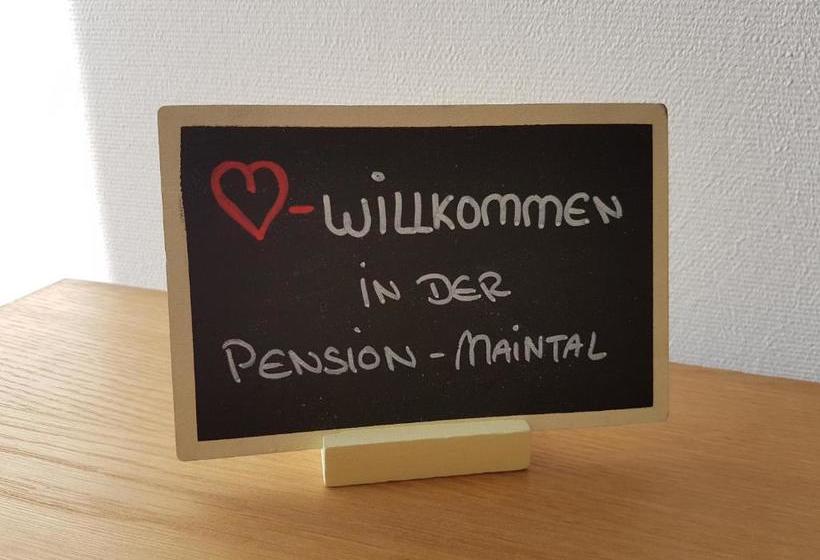 ♥-WILLKOMMEN
IN DER
PENSION-MAINTAL